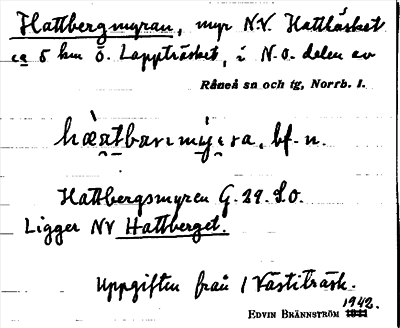 Hattbergmyran, myr N.V. Hattåsket
ca 5 km Ö. Lappträsket, i N.O. delen av
Råneå sn och tg, Norrb. l.
bf. n.
Hattbergsmyren G. 29. S.O.
Ligger NV Hattberget.
Uppgiften från 1 Västiträsk.
1942.
EDVIN BRÄNNSTRÖM